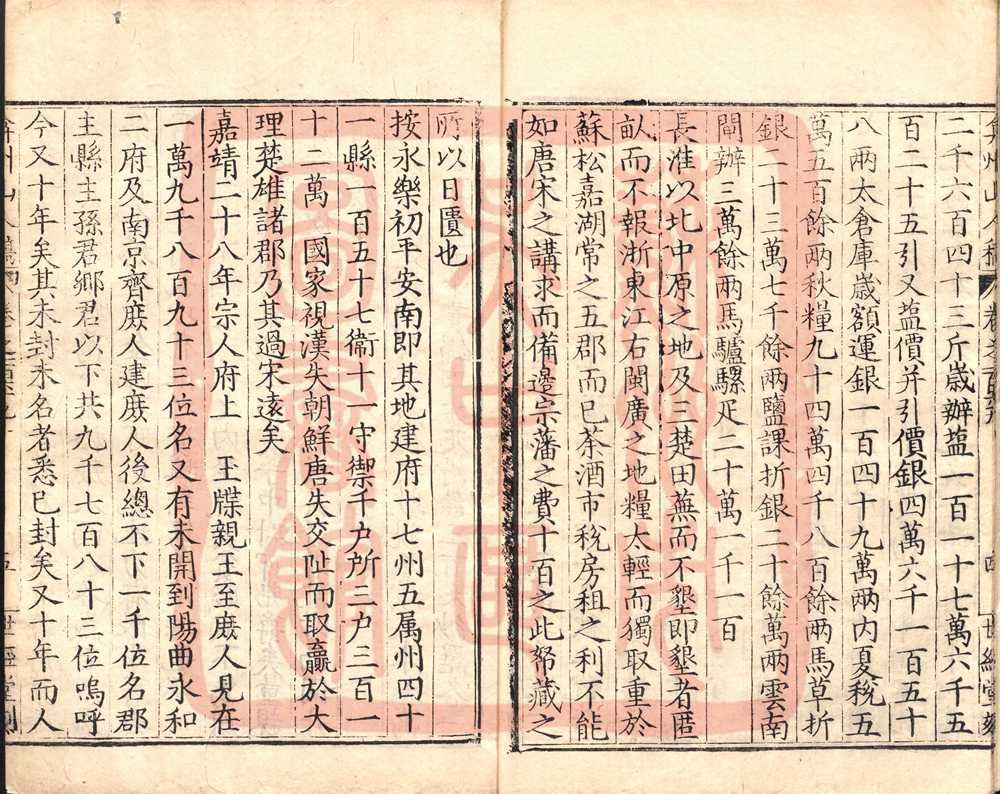 二千六百四十三斤歲辦鹽一百一十七萬六千五
百二十五引又鹽價并引價銀四萬六千一百五十
八兩太倉庫歲額運銀一百四十九萬兩內夏稅五
萬五百餘兩秋糧九十四萬四千八百餘兩馬草折
銀二十三萬七千餘兩鹽課折銀二十餘萬兩雲南
閘辦三萬餘兩馬驢騾疋二十萬一千一百
長淮以北中原之地及三楚田蕪而不墾即墾者匿
畝而不報浙東江右閩廣之地糧太輕而獨取重於
蘇松嘉湖常之五郡而已茶酒市稅房租之利不能
如唐宋之講求而備邊宗藩之費十百之此帑藏之
所以日匱也
按永樂初平安南即其地建府十七州五属州四十
一縣一百五十七衞十一守禦千户所三户三百一
十二萬國家視漢失朝鮮唐失交阯而取贏於大
理楚雄諸郡乃其過宋遠矣
嘉靖二十八年宗人府上王牒親王至庶人見在
一萬九千八百九十三位名又有未開到陽曲永和
二府及南京齊庶人建庶人後總不下一千位名郡
主縣主孫君鄉君以下共九千七百八十三位嗚呼
今又十年矣其未封未名者悉已封矣又十年而人